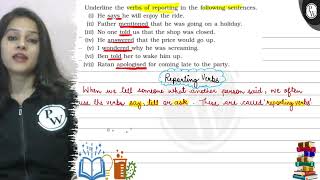 Underline the verbs of reporting in the following sentences.
(i) He says he will enjoy the ride.
(ii) Father mentioned that he was going on a holiday.
(iii) No one told us that the shop was closed.
(iv) He answered that the price would go up.
(v) I wondered why he was screaming.
(vi) Ben told her to wake him up.
(vii) Ratan apologised for coming late to the party.
Reporting Verbs
When we tell someone what another person said, we often
use the verbs say, tell or ask. These are called 'reporting verbs'
PW